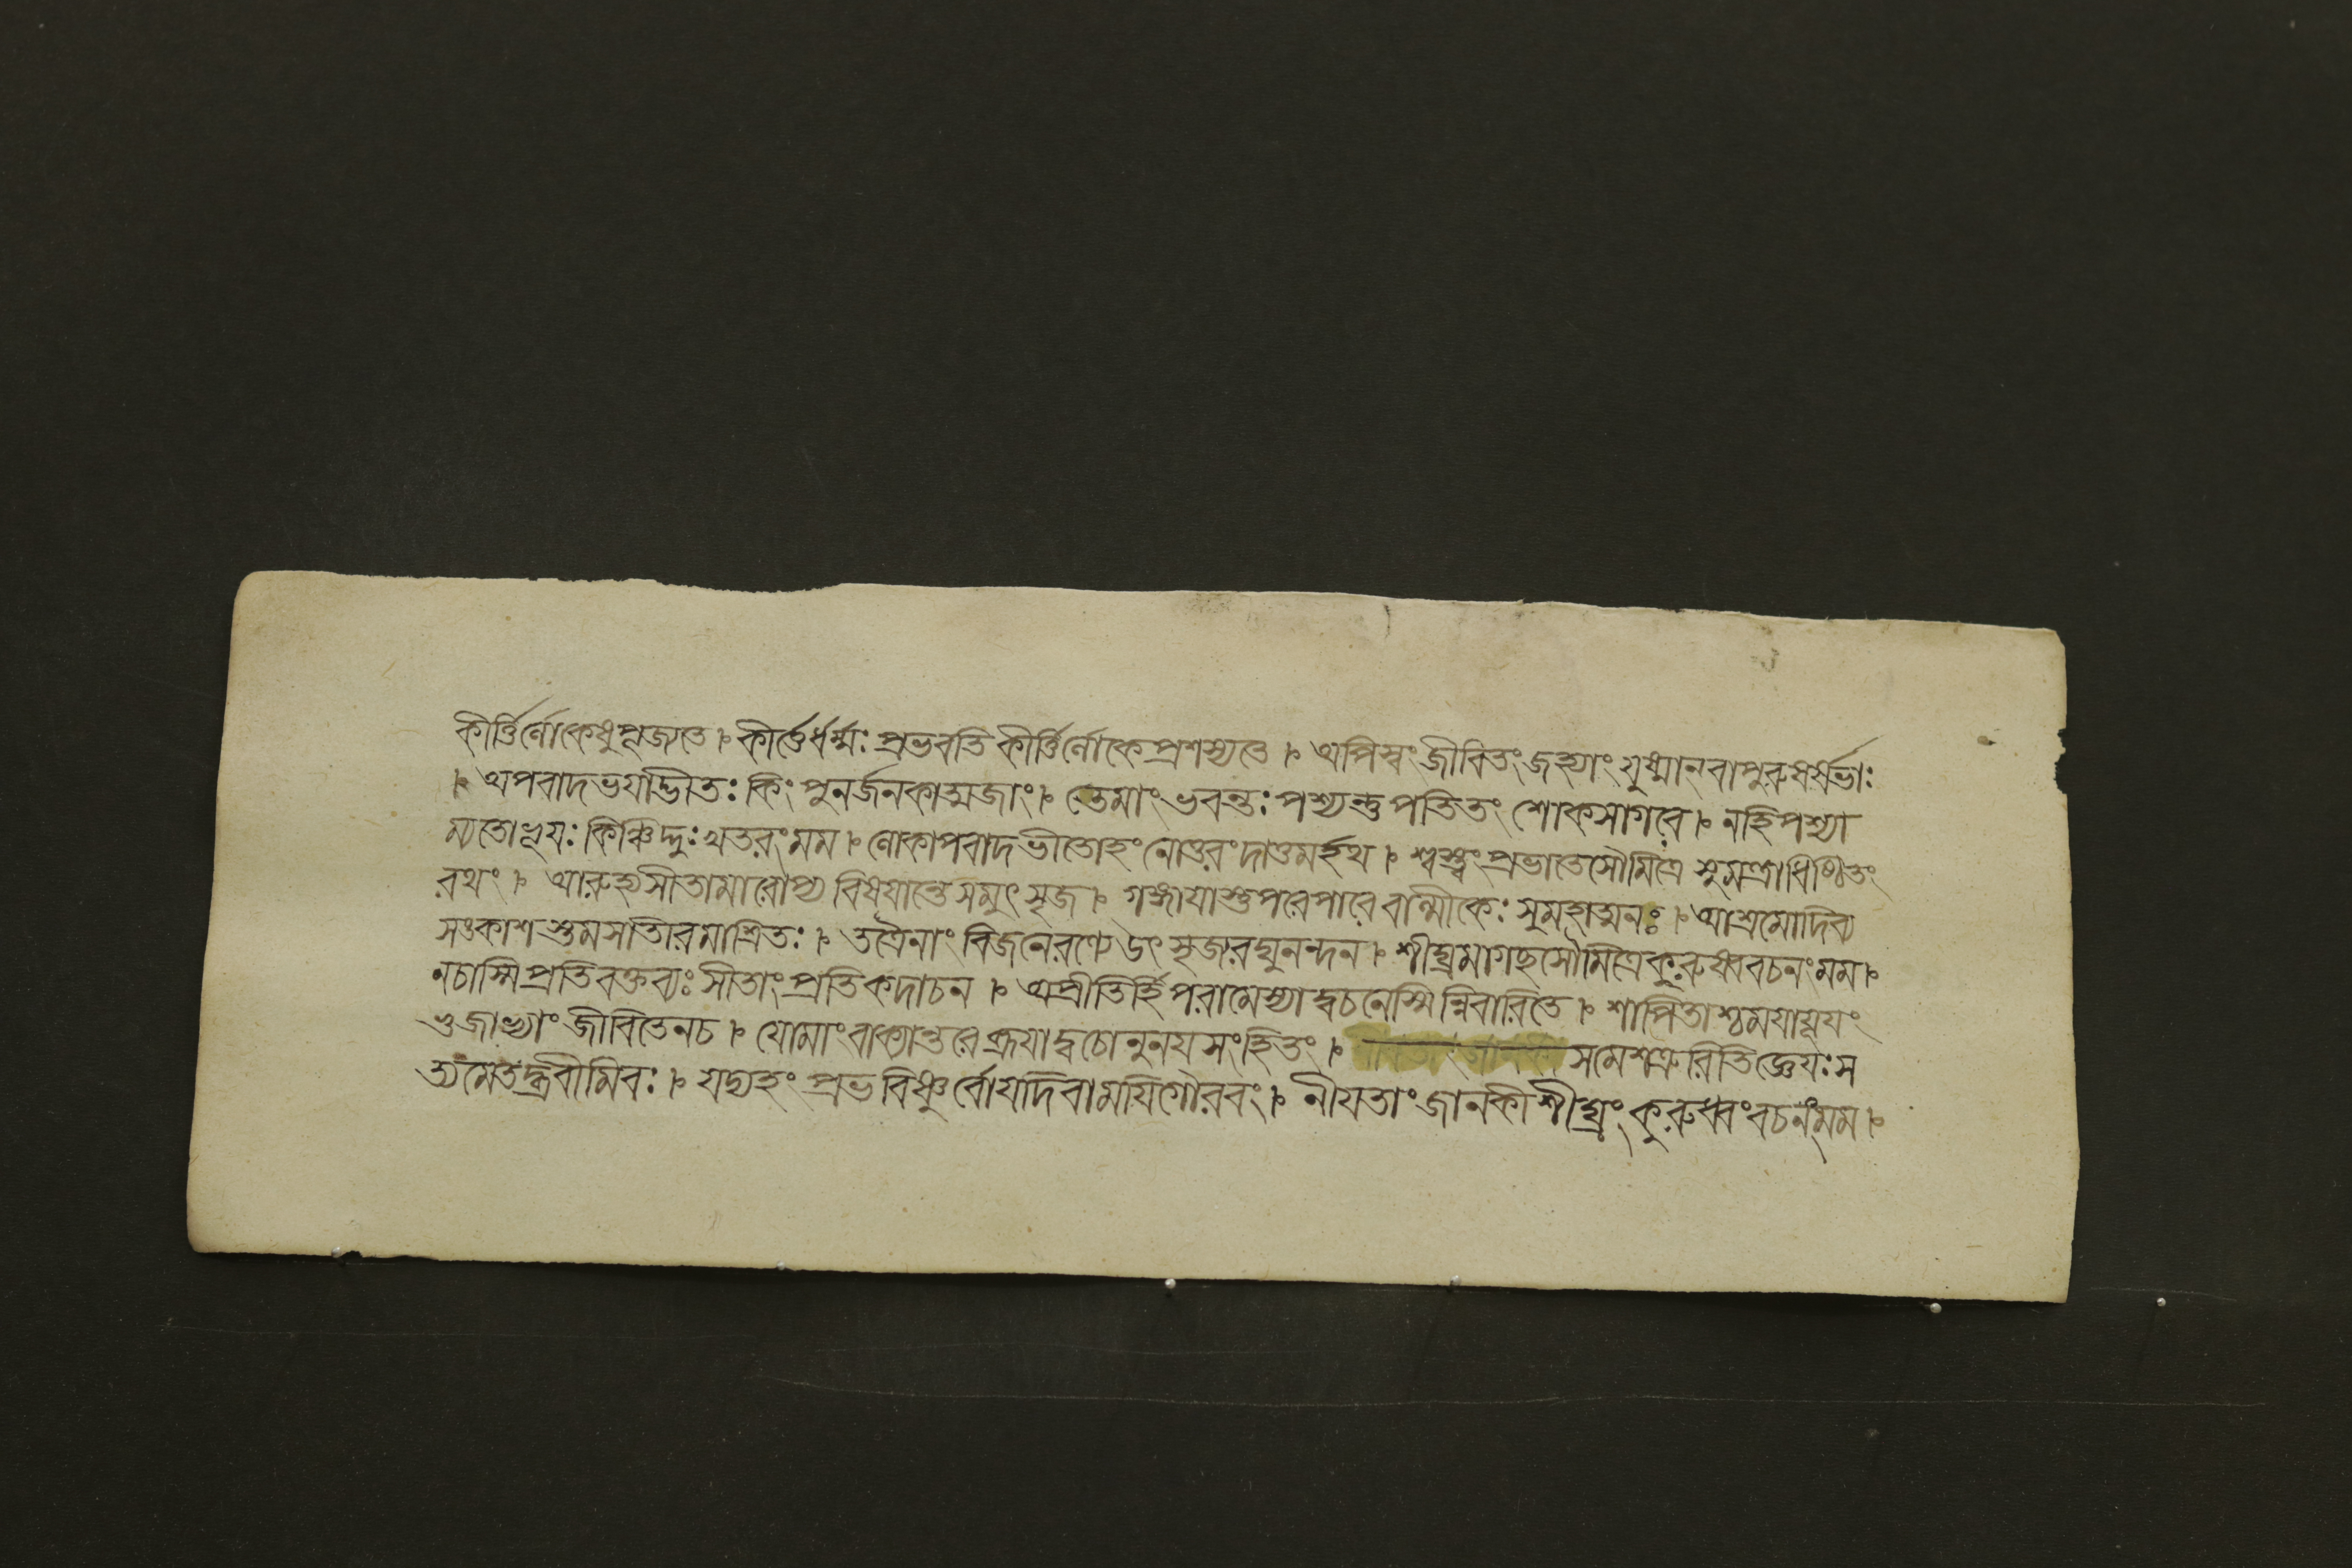 কীর্ত্তির্লোকেষুপূজ্যতে ৷ কীর্ত্তের্ধর্ম্মঃ প্রভবতি কীর্ত্তির্লোকে প্রশস্যতে ৷ অপিস্বং জীবিতং জহ্যাং যুষ্মান্ বাপুরুষর্ষভাঃ
৷ অপবাদভয়াদ্ভীতঃ কিং পুনর্জনকাত্মজাং ৷ তেমাং ভবন্তঃ পশ্যন্তু পতিতং শোকসাগরে ৷ নহিপশ্যা
ম্যতোভূয়ঃ কিঞ্চিদ্দুঃখতরং মম ৷ লোকাপবাদভীতোহং নোত্তরং দাতুমর্হথ ৷ শ্বস্ত্বং প্রভাতেসৌমিত্রে সুমন্ত্রাধিষ্ঠিতং
রথং ৷ আরুহ্যসীতামারোপ্য বিষয়ান্তেসমুৎসৃজ ৷ গঙ্গায়াস্তুপরেপারে বাল্মীকেঃ সুমহাত্মনঃ ৷ আশ্রমোদিব্য
সংকাশস্তমসাতীরমাশ্রিতঃ ৷ তত্রৈনাং বিজনেরণ্যে উৎসৃজ্যরঘুনন্দন ৷ শীঘ্রমাগছসৌমিত্রেকুরুষ্ববচনংমম ৷
নচাস্মিপ্রতিবক্তব্যঃ সীতাংপ্রতিকদাচন ৷ অপ্রীতির্হি পরামেস্যাদ্বচনেস্মিন্নিবারিতে ৷ শাপিতাশ্চময়াযূয়ং
ভুজাভ্যাং জীবিতেনচ ৷ যোমাং বাক্যান্তরে ব্রূয়াদ্বচোনুনয়সংহিতং ৷ সমেশত্রুরিতিজ্ঞেয়ঃ স
ত্যমেতদ্ব্রবীমিবঃ ৷ যদ্যহং প্রভবিষ্ণুর্বোযদিবাময়িগৌরবং ৷ নীয়তাং জানকী শীঘ্রং কুরুধ্বংবচনংমম ৷